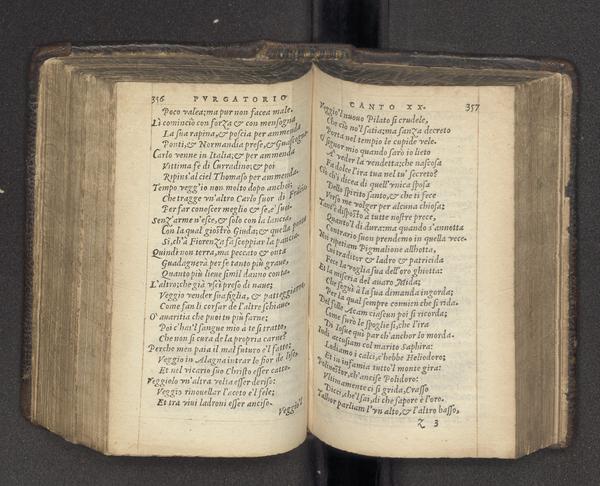 356 PVRGATORIO
Poco valea; ma pur non facea male.
Lì cominciò con forza & con menſogna
La ſua rapina, & poſcia per ammenda
Ponti, & Normandia preſe, & Guaſcogna
Carlo venne in Italia; & per ammenda
Vittima fè di Curradino; & poi
Ripinſ' al ciel Thomaſo per ammenda.
Tempo vegg'io non molto dopo anchoi;
Che tragge vn'altro Carlo fuor di Francia
Per far conoſcer meglio & ſe, e' ſuoi.
Senz'arme n'eſce, & ſolo con la lancia,
Con la qual gioſtrò Giuda; & quella ponta
Sì, ch'à Fiorenza fa ſcoppiar la pancia.
Quindi non terra, ma peccato & onta
Guadagnerà per ſe tanto più graue,
Quanto più lieue ſimil danno conta.
L'altro; che già vſcì preſo di naue;
Veggio vender ſua figlia, & patteggiarne,
Come fan li corſar de l'altre ſchiaue.
O' auaritia che puoi tu più farne;
Poi c'has'l ſangue mio à te ſi tratto,
Che non ſi cura de la propria carne?
Perche men paia il mal futuro e'l fatto;
Veggio in Alagna intrar lo fior de liſo,
Et nel vicario ſuo Chriſto eſſer catto.
Veggiolo vn'altra volta eſſer deriſo:
Veggio rinouellar l'aceto e'l fele;
Et tra viui ladroni eſſer anciſo.
Veggio'l
CANTO XX. 357
Veggio'l nuouo Pilato ſi crudele,
Che ciò no'l ſatia; ma ſanza decreto
Porta nel tempio le cupide vele.
O' ſignor mio quando ſarò io lieto
A' veder la vendetta; che naſcoſa
Fa dolce l'ira tua nel tu' ſecreto?
Ciò ch'i dicea di quell'vnica ſpoſa
Dello ſpirito ſanto, & che ti fece
Verſo me volger per alcuna chioſa;
Tant'è diſpoſto à tutte noſtre prece,
Quanto'l dì dura: ma quando s'annotta
Contrario ſuon prendemo in quella vece.
Noi ripetiam Pigmalione allhotta,
Cui traditor & ladro & patricida
Fece la voglia ſua dell'oro ghiotta:
Et la miſeria del auaro Mida;
Che ſeguì à la ſua dimanda ingorda;
Per la qual ſempre conuien che ſi rida.
Del folle Acam ciaſcun poi ſi ricorda;
Come furò le ſpoglie ſi, che l'ira
Di Ioſuè quì par ch'anchor lo morda.
Indi accuſiam col marito Saphira:
Lodiamo i calci, c'hebbe Heliodoro;
Et in infamia tutto'l monte gira:
Polineſtor, ch'anciſe Polidoro:
Vltimamente ci ſi grida, Craſſo
Dicci, che'l ſai, di che ſapore è l'oro.
Talhor parliam l'vn alto, & l'altro baſſo,
Z 3